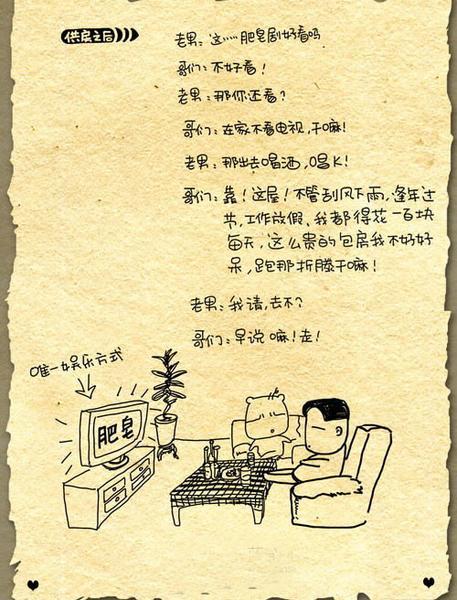 供房之后
老男：这……肥皂剧好看吗
哥们：不好看！
老男：那你还看？
哥们：在家不看电视，干嘛！
老男：那出去喝酒，唱K！
哥们：靠！这屋！不管刮风下雨，逢年过
节，工作放假、我都得花一百块
每天，这么贵的包房我不好好
呆，跑那折腾干嘛！
老男：我请，去不？
哥们：早说嘛！走！
唯一娱乐方式
肥皂